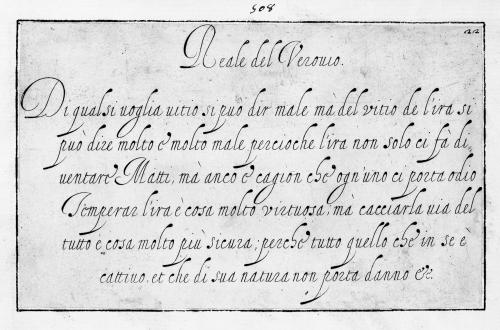 508
212
Reale del Verouio.
Di qual si uoglia uitio si può dir male mà del vitio de l'ira si
può dire molto e molto male percioche l'ira non solo ci fà di
uentare Matti, mà anco è cagion che ogn'uno ci porta odio
Temperar l'ira è cosa molto virtuosa, mà cacciarla uia del
tutto è cosa molto più sicura, perche tutto quello che in se è
cattiuo, et che di sua natura non porta danno &c.